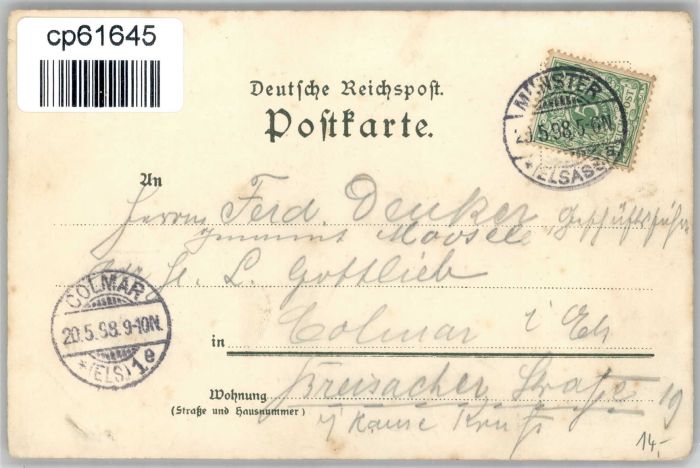 cp61645
Deutsche Reichspost.
Postkarte.
MÜNSTER
20.5.98.5-6N.
*(ELSASS)a
An
Herrn Ferd. Denker, Geschäftsführer
Moosele
L. Gottlieb
COLMAR
20.5.98.9-10N.
*(ELS.)1e
in Colmar i Els
Wohnung Breisacher Straße 19
(Straße und Hausnummer)
i/ Hause
14.-